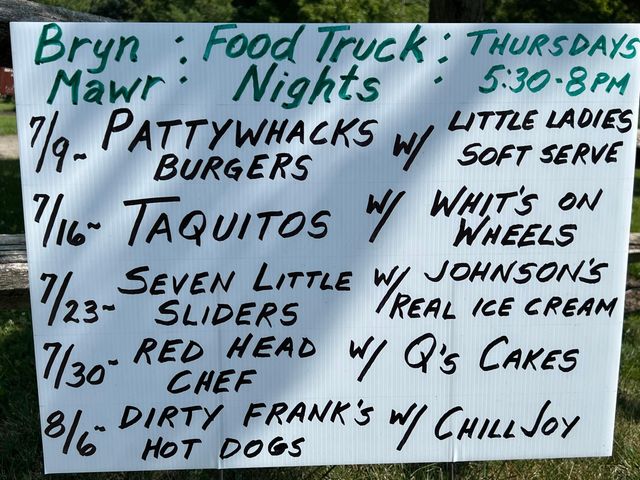 Bryn Mawr : Food Truck Nights : THURSDAYS 5:30-8PM
7/9~ PATTYWHACKS BURGERS w/ LITTLE LADIES SOFT SERVE
7/16~ TAQUITOS w/ WHIT'S ON WHEELS
7/23~ SEVEN LITTLE SLIDERS w/ JOHNSON'S REAL ICE CREAM
7/30~ RED HEAD CHEF w/ Q's CAKES
8/6~ DIRTY FRANK'S HOT DOGS w/ CHILL JOY